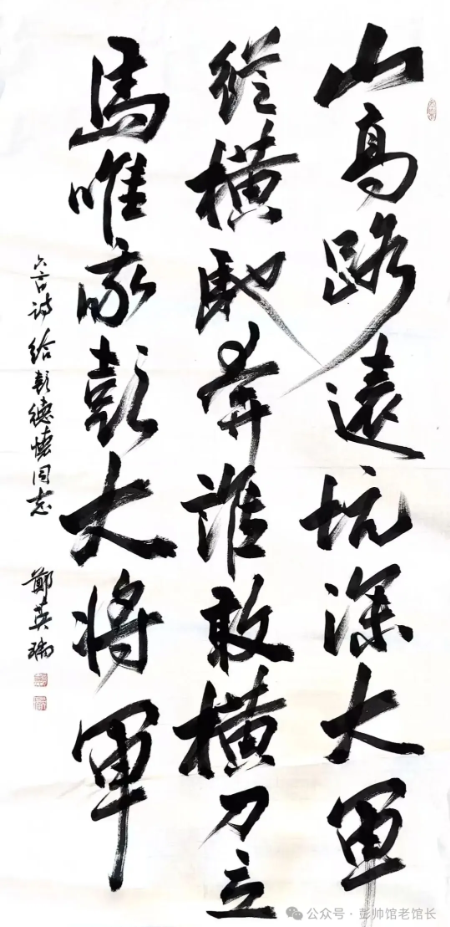 山高路遠坑深大軍
縱橫馳奔誰敢橫刀立
馬唯我彭大将軍
六言诗给彭德懷同志
鄭英瑞
公众号·彭帅馆老馆长